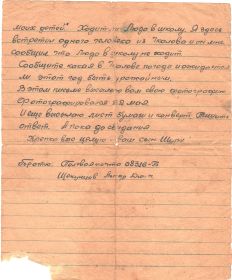 моих детей". Ходит ли Люда в школу. Я здесь
встретил одного человека из Чкалова и он мне
сообщил что Люда в школу не ходит
Сообщите какая в Чкалове погода и ожидается
ли этот год быть урожайным.
В этом письме высылаю вам свою фотографию
Фотографировался 8 мая
И еще высылаю лист бумаги и конверт. Пишите
ответ. А пока до свидания
Крепко вас целую ваш сын Шура
Обратно: Полевая почта 08316-В